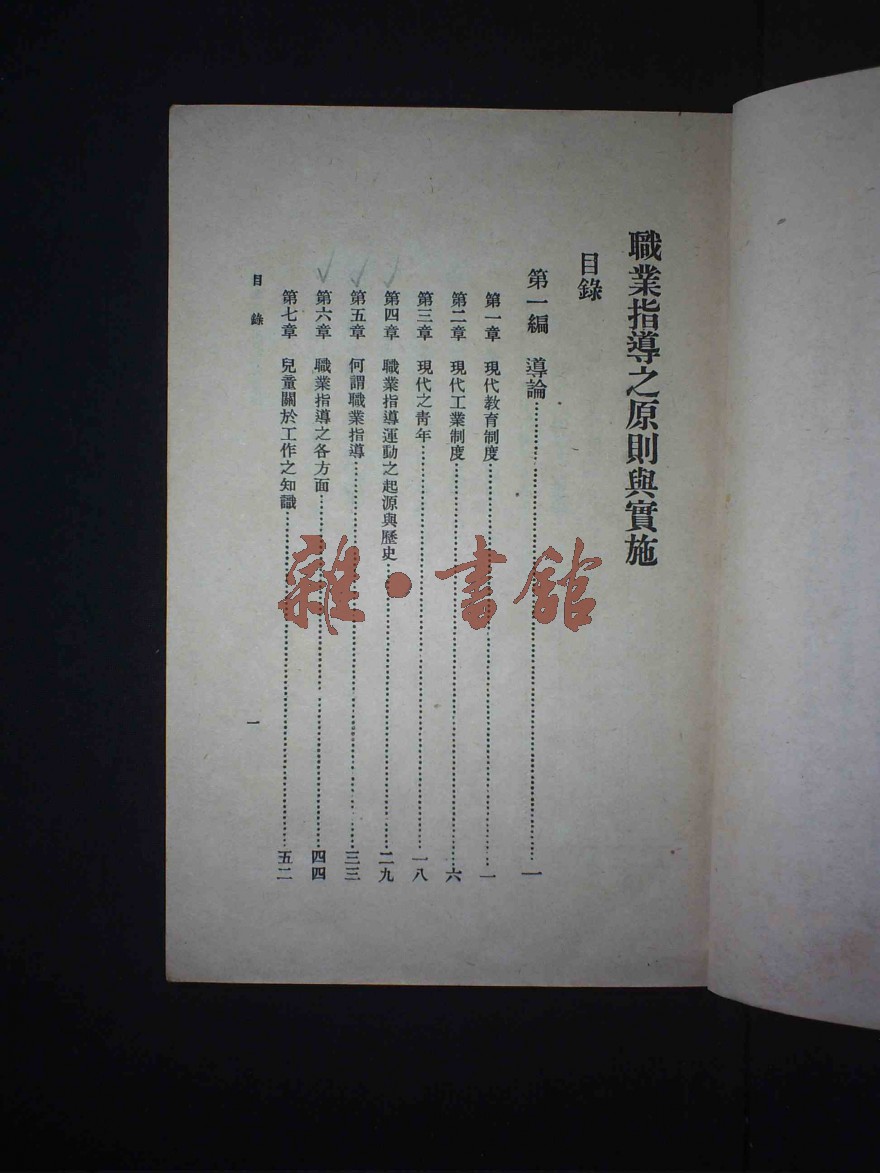 職業指導之原則與實施
目錄
第一編　導論……………一
第一章　現代教育制度……………一
第二章　現代工業制度……………六
第三章　現代之靑年……………一八
第四章　職業指導運動之起源與歷史……………二九
第五章　何謂職業指導……………三三
第六章　職業指導之各方面……………四四
第七章　兒童關於工作之知識……………五二
目　錄　一
雜·書館